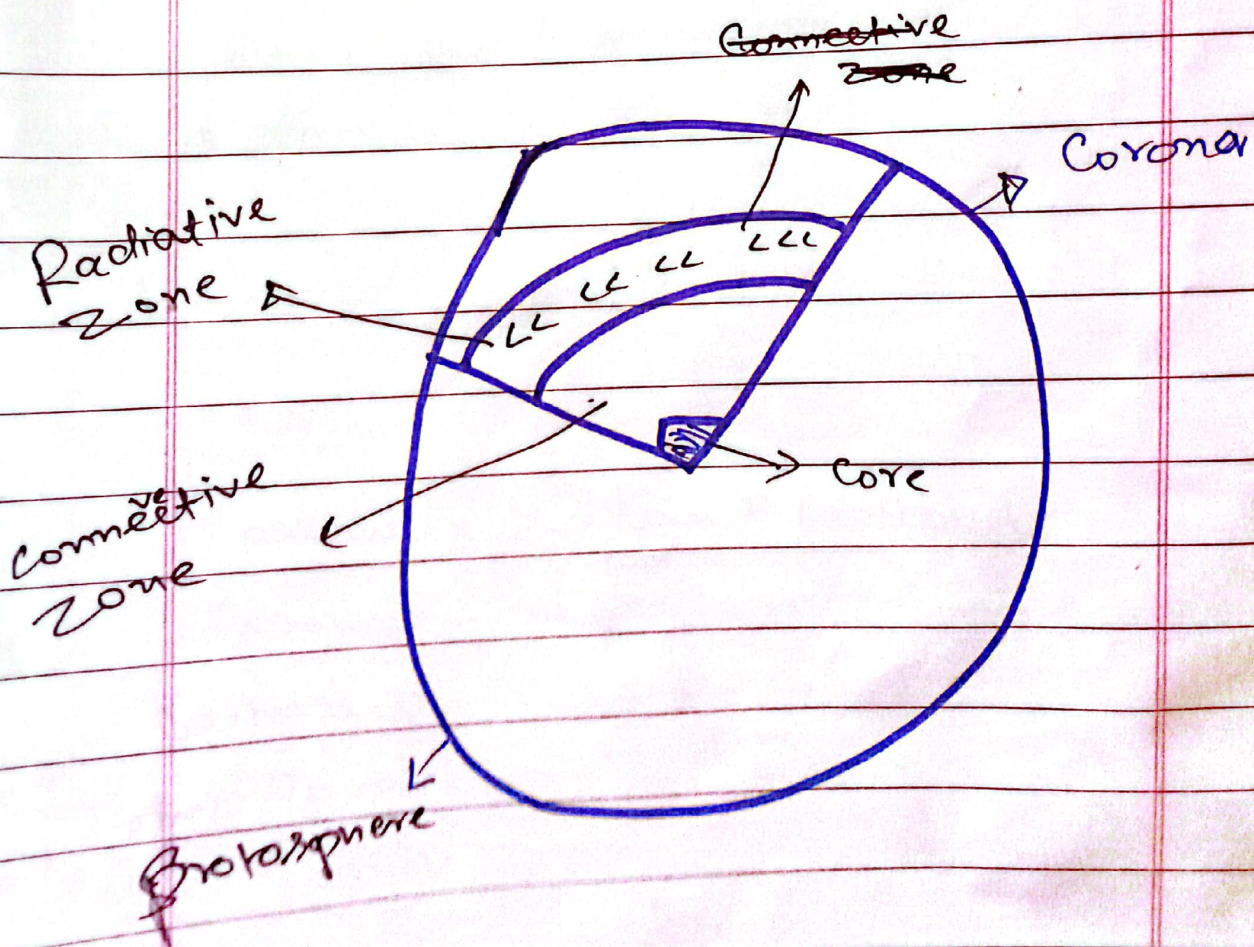 Connective
Zone
Corona
Radiative
Zone
Core
ve
connective
Zone
Protosphere